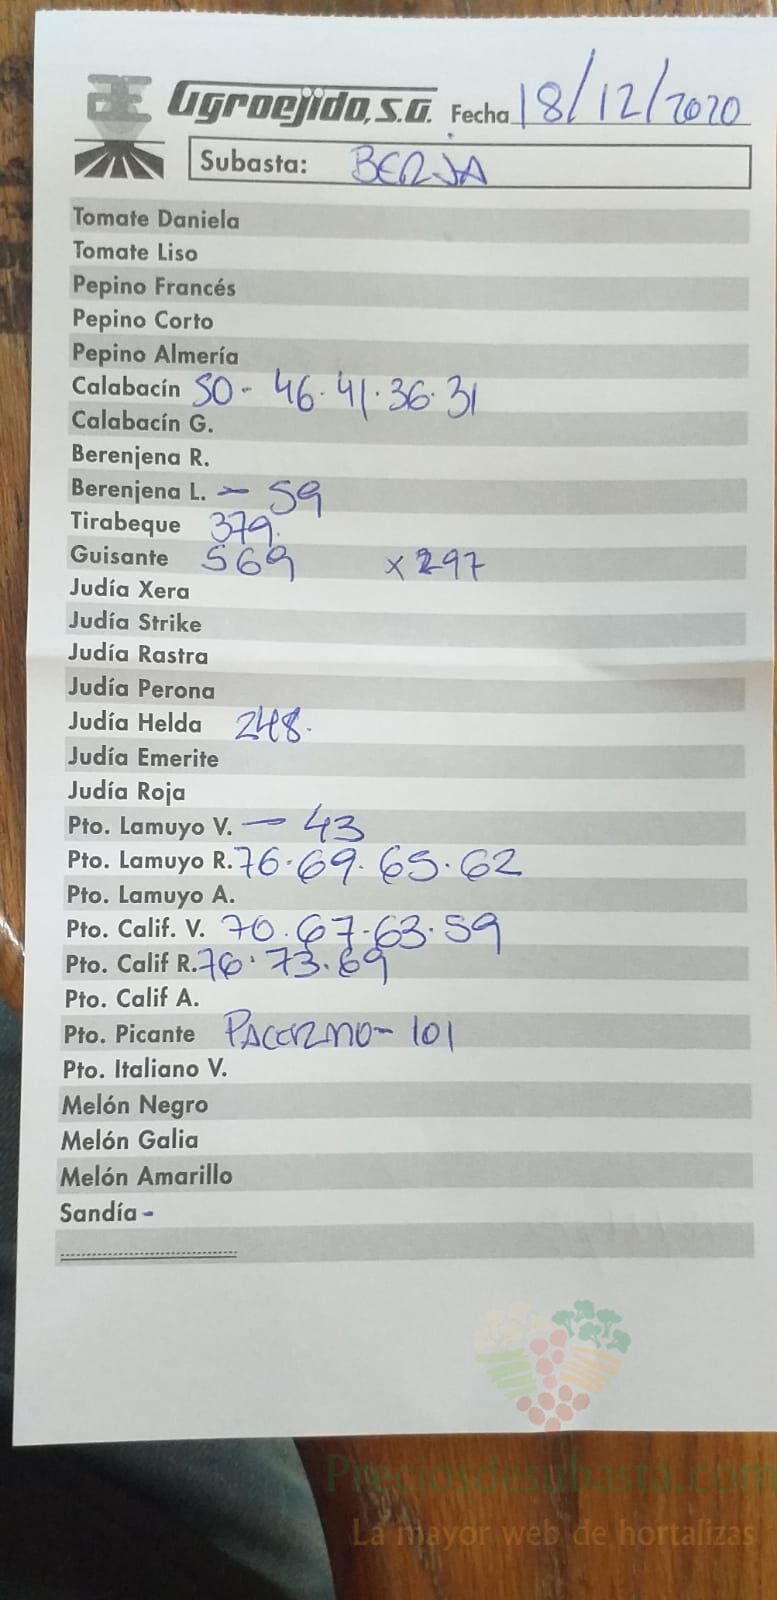 Agroejido, S.A. Fecha 18/12/2020
Subasta: BERJA
Tomate Daniela
Tomate Liso
Pepino Francés
Pepino Corto
Pepino Almería
Calabacín 50 - 46 · 41 · 36 · 31
Calabacín G.
Berenjena R.
Berenjena L. - 59
Tirabeque 379.
Guisante 569 x 297
Judía Xera
Judía Strike
Judía Rastra
Judía Perona
Judía Helda 248.
Judía Emerite
Judía Roja
Pto. Lamuyo V. - 43
Pto. Lamuyo R. 76 · 69 · 65 · 62
Pto. Lamuyo A.
Pto. Calif. V. 70 · 67 · 63 · 59
Pto. Calif R. 76 · 73 · 69
Pto. Calif A.
Pto. Picante - 101
Pto. Italiano V.
Melón Negro
Melón Galia
Melón Amarillo
Sandía -
Preciosdesubasta.com
La mayor web de hortalizas